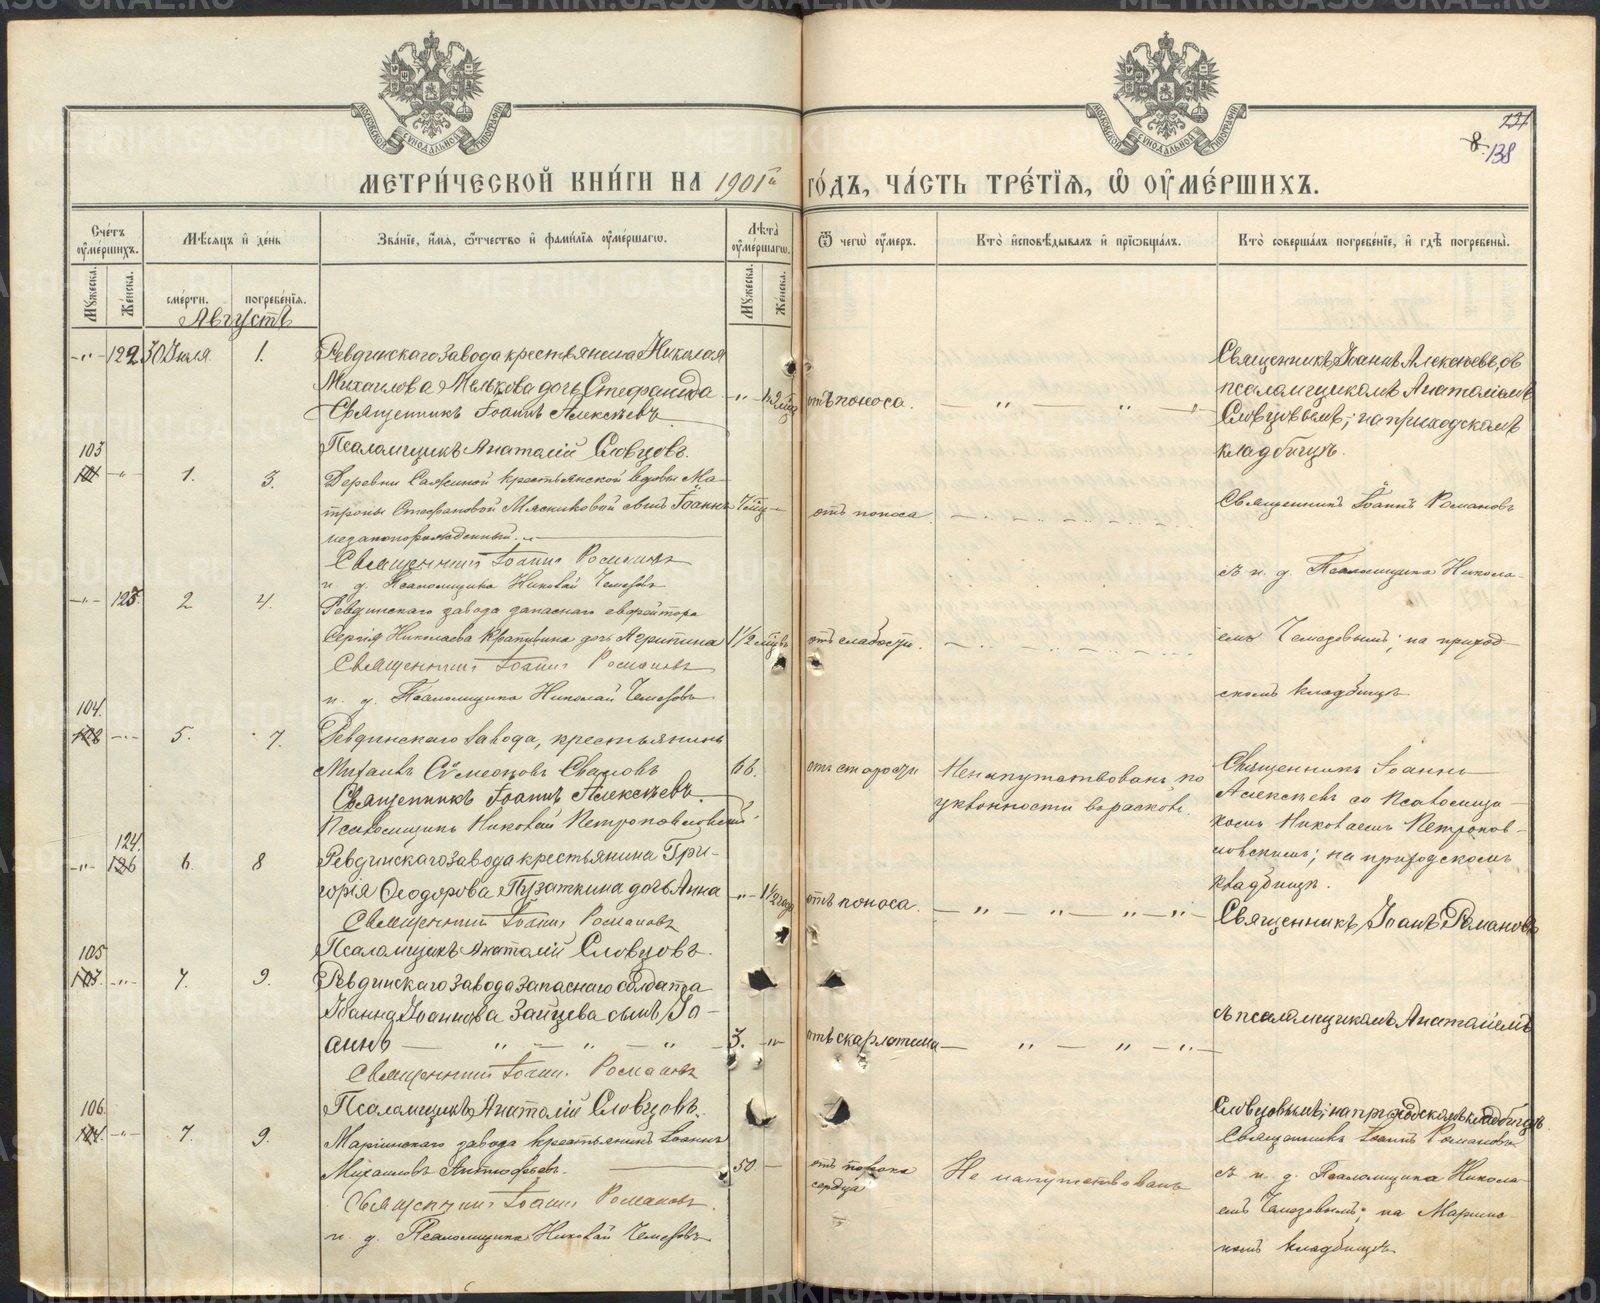 МЕТРИ́ЧЕСКОЙ КНИ́ГИ НА 1901й ГО́ДЪ, ЧА́СТЬ ТРЕ́ТІѦ, Ѡ ОУМЕ́РШИХЪ.
138
Сче́тъ оуме́ршихъ.
Мѣ́сяцъ и де́нь
Зва́ніе, и́мя, ѻтчество и фами́лія оуме́ршагѡ.
Лѣта̀ оуме́ршагѡ.
Ѿ чегѡ̀ оу́меръ.
Кто̀ исповѣ́дывалъ и пріѻбща́лъ.
Кто̀ соверша́лъ погребе́ніе, и гдѣ̀ погребены̀.
Мꙋ́жеска.
Же́нска.
сме́рти.
погребе́нія.
Мꙋ́жеска.
Же́нска.
Августъ
-"- 122 30 Іюля 1.
Ревдинскаго завода крестьянина Николая
Михаилова Мелькова дочь Стефанида
Священникъ Іоаннъ Алексѣевъ
Псаломщикъ Анатолій Словцовъ.
отъ поноса.
Священникъ Іоаннъ Алексѣевъ, съ
псаломщикомъ Анатоліемъ
Словцовымъ; на приходскомъ
кладбищѣ.
103
101 -"- 1. 3.
Деревни Сажиной крестьянской вдовы Ма-
троны Стефановой Мясниковой сынъ Іоаннъ
незаконорожденный.
Священникъ Іоаннъ Романовъ
и. д. Псаломщика Николай Чемезовъ
отъ поноса
Священникъ Іоаннъ Романовъ
съ и. д. Псаломщика Никола-
-"- 123. 2 4.
Ревдинскаго завода запаснаго ефрейтора
Сергія Николаева Крапивина дочь Агрипина
1 1/2 мѣсяцъ
Священникъ Іоаннъ Романовъ
и. д. Псаломщика Николай Чемезовъ
отъ слабости.
емъ Чемезовымъ; на приход-
скомъ кладбищѣ
104.
102 -"- 5. 7.
Ревдинскаго завода, крестьянинъ
Михаилъ Сѵмеоновъ
66.
Священникъ Іоаннъ Алексѣевъ.
Псаломщикъ Николай Петропавловскій.
отъ старости
Ненапутствованъ по
уклонности въ расколъ.
Священникъ Іоаннъ
Алексѣевъ со Псаломщи-
комъ Николаемъ Петропав-
ловскимъ; на приходскомъ
кладбищѣ.
124.
-"- 126 6. 8
Ревдинскаго завода крестьянина Гри-
горія Ѳеодорова Пузаткина дочь Анна
-"- 1 1/2 года
Священникъ Іоаннъ Романовъ
Псаломщикъ Анатолій Словцовъ.
отъ поноса.
Священникъ Іоаннъ Романовъ
105
103. -"- 7. 9.
Ревдинскаго завода запаснаго солдата
Іоанна Іоаннова Зайцева сынъ Іо-
аннъ — " — " — " —
3. -"-
Священникъ Іоаннъ Романовъ
Псаломщикъ Анатолій Словцовъ.
отъ скарлатина
съ псаломщикомъ Анатоліемъ
Словцовымъ; на приходскомъ кладбищѣ.
106.
104. -"- 7. 9.
Маріинскаго завода крестьянинъ Іоаннъ
Михаиловъ
50 —
Священникъ Іоаннъ Романовъ.
и. д. Псаломщика Николай Чемезовъ
отъ порока
сердца
Не напутствованъ
Священникъ Іоаннъ Романовъ
съ и. д. Псаломщика Никола-
емъ Чемезовымъ; на Маріин-
скомъ кладбищѣ
METRIKI.GASO-URAL.RU